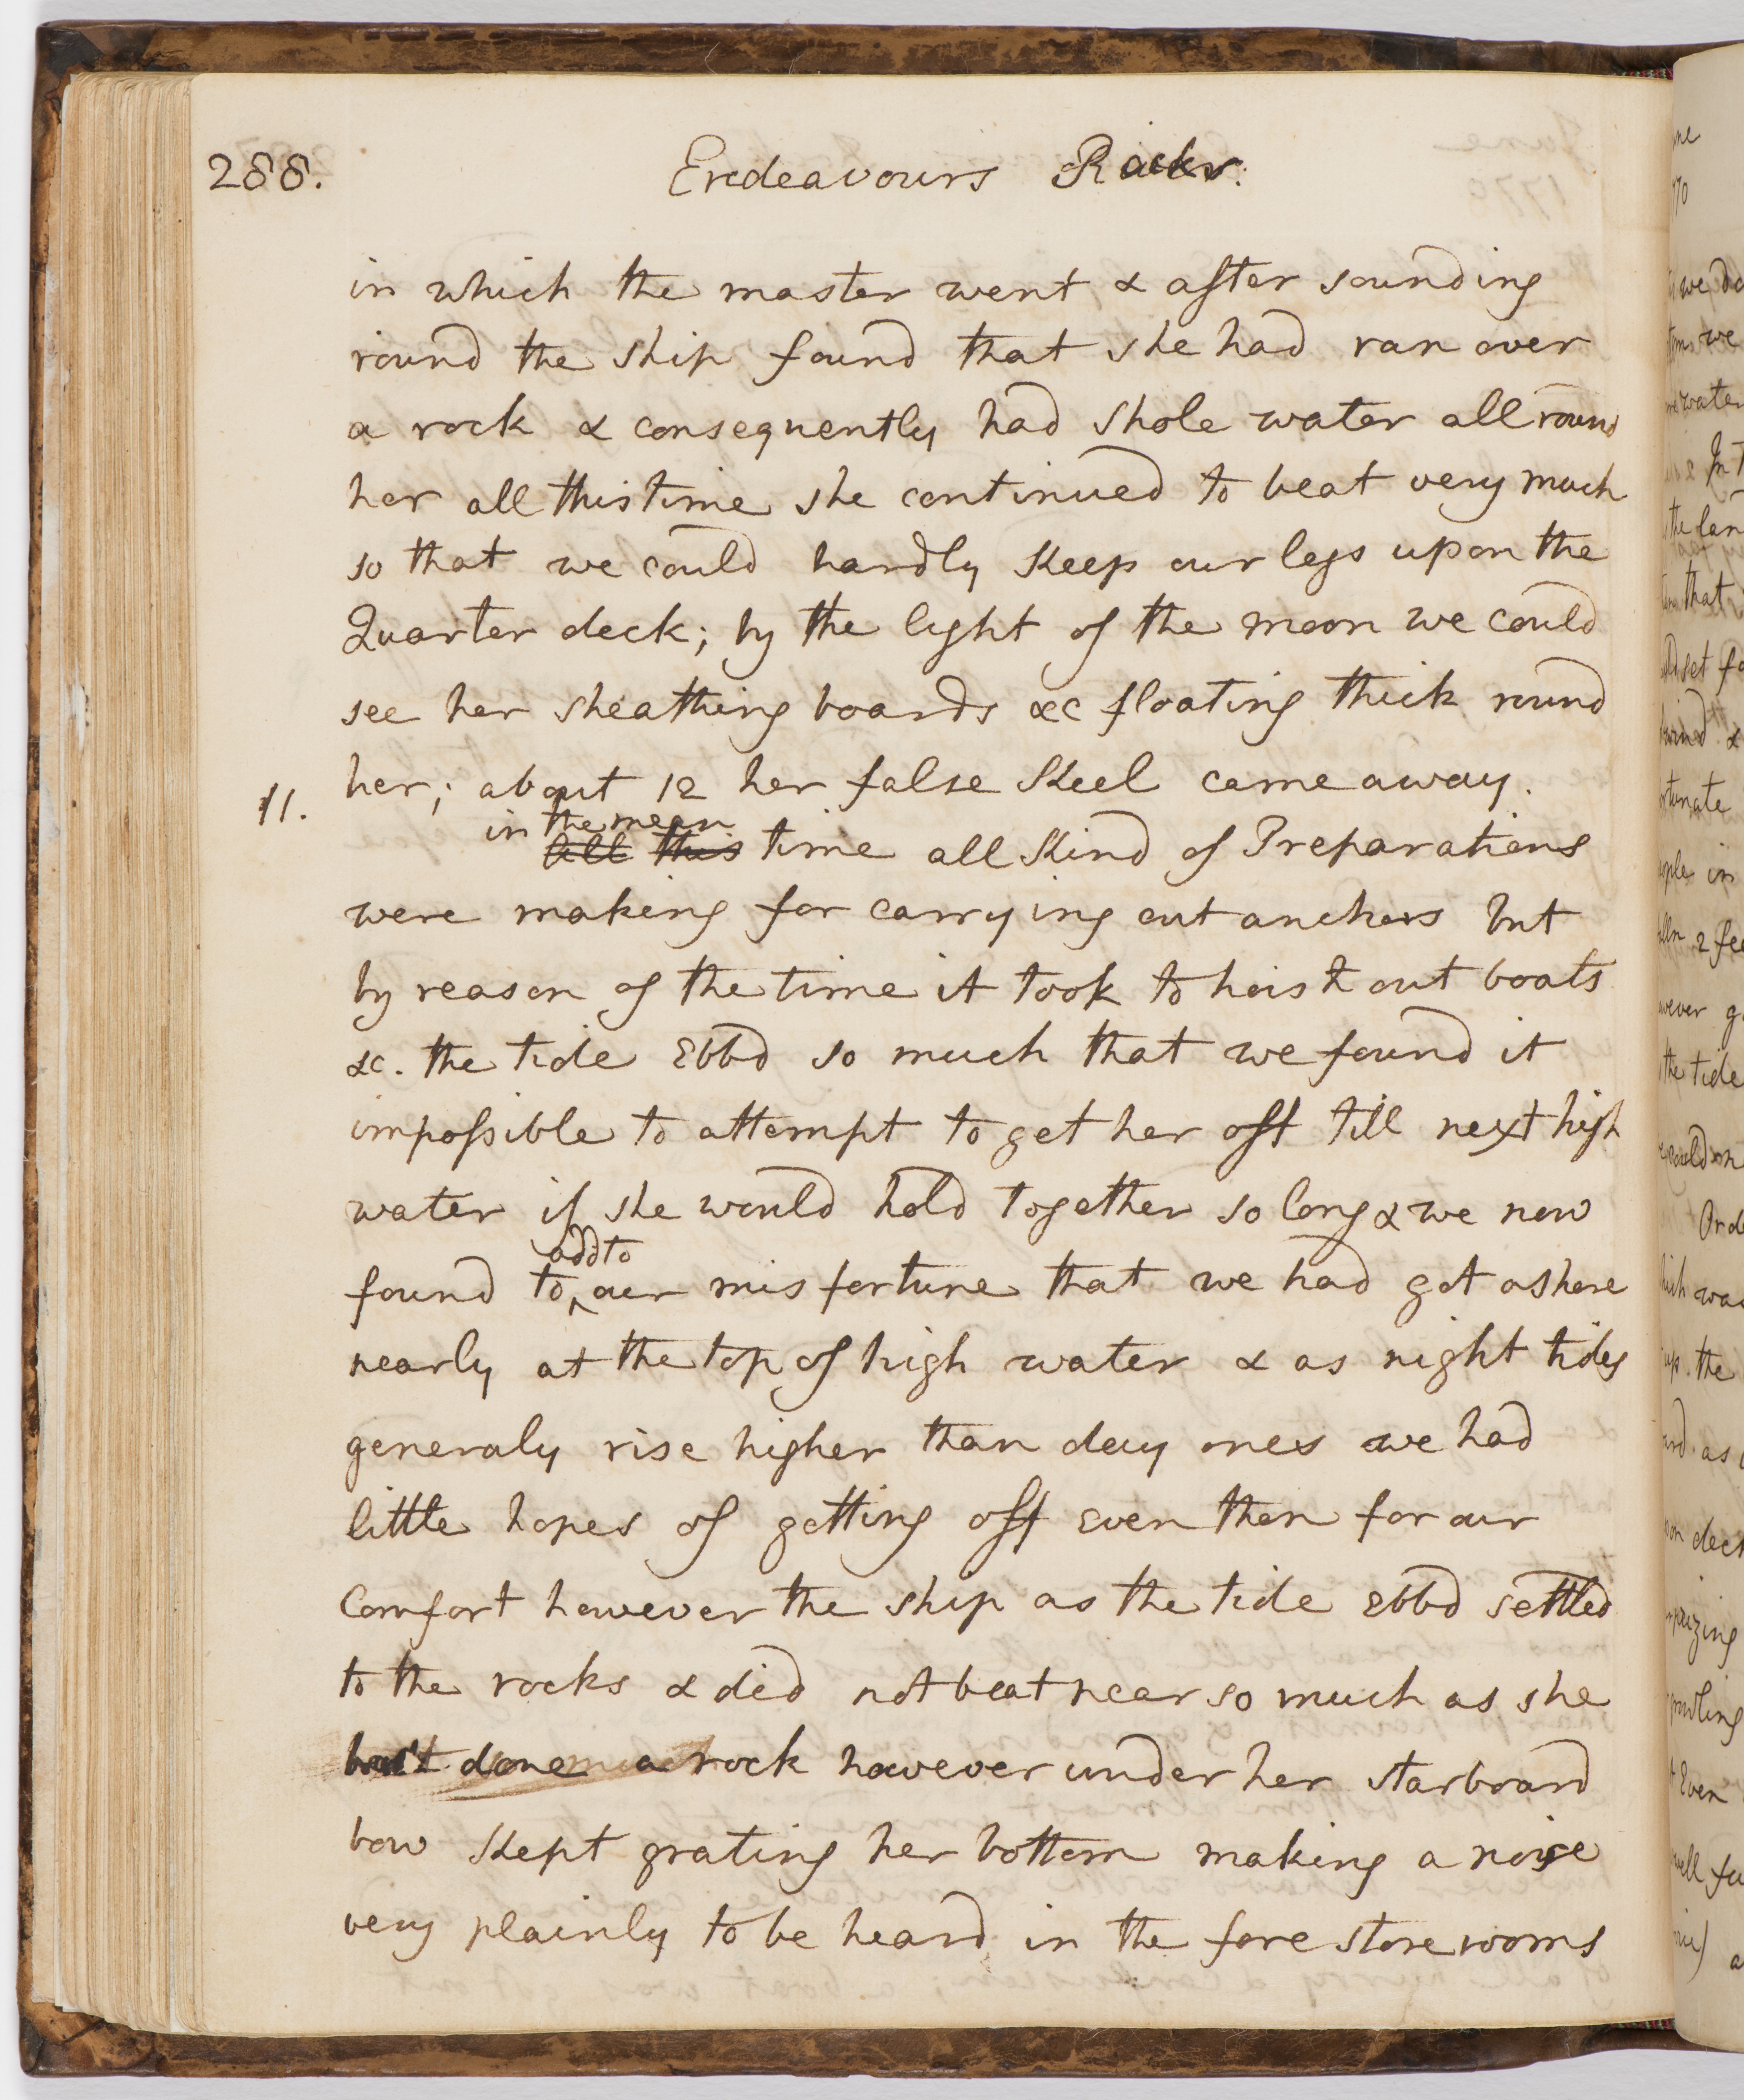 288.
Endeavours Rocks.
in which the master went & after sounding
round the ship found that she had ran over
a rock & consequently had Shole water all round
her all this time she continued to beat very much
so that we could hardly Keep our legs upon the
Quarter deck; by the light of the moon we could
see her sheathing boards &c floating thick round
her; about 12 her false Keel came away.
11.
in the mean
All this time all Kind of Preparations
were making for carrying out anchors but
by reason of the time it took to hoist out boats
&c. the tide Ebbd so much that we found it
impossible to attempt to get her off till next high
water if she would hold together so long & we now
add to
found to ‸ our misfortune that we had got ashore
nearly at the top of high water & as night tides
generaly rise higher than day ones we had
little hopes of getting off even then for our
Comfort however the ship as the tide Ebbd settled
to the rocks & did not beat near so much as she
had done a rock however under her starboard
bow Kept grating her bottom making a noise
very plainly to be heard in the fore store rooms
we
water
In
that
set
wind &
in
2
the tide
the
as
deck
Even